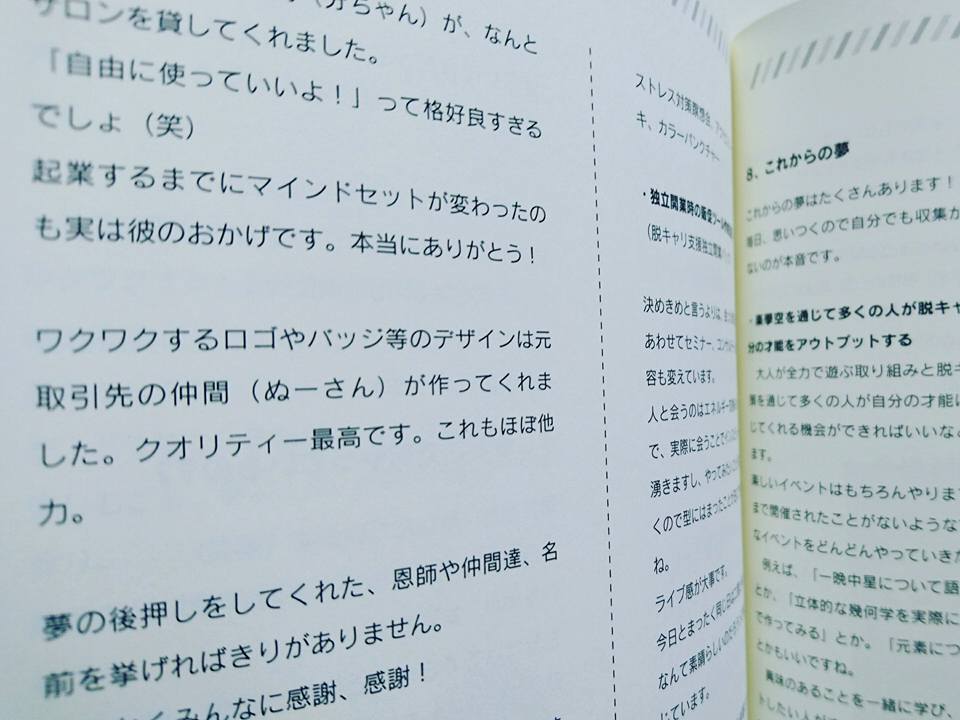 サロンを貸してくれました。
「自由に使っていいよ!」って格好良すぎる
でしょ(笑)
起業するまでにマインドセットが変わったの
も実は彼のおかげです。本当にありがとう!
ワクワクするロゴやバッジ等のデザインは元
取引先の仲間(ぬーさん)が作ってくれま
した。クオリティー最高です。これもほぼ他
力。
夢の後押しをしてくれた、恩師や仲間達、名
前を挙げればきりがありません。
みんなに感謝、感謝!
ストレス対策瞑想会、
キ、カラーパンクチャー
・独立開業時の販促ツール
(脱キャリ支援独立開業
決めきめと言うよりは、
あわせてセミナー、コンサル
容も変えています。
人と会うのはエネルギー
で、実際に会うことで
湧きますし、やってみたい
くので型にはまった
ね。
ライブ感が大事です。
今日とまったく同じ日は
なんて素晴らしい
じています。
8、これからの夢
これからの夢はたくさんあります!
毎日、思いつくので自分でも収集が
ないのが本音です。
・楽夢空を通じて多くの人が脱キャ
分の才能をアウトプットする
大人が全力で遊ぶ取り組みと脱キ
業を通じて多くの人が自分の才能に
じてくれる機会ができればいいな
ます。
楽しいイベントはもちろんやりま
まで開催されたことがないような
なイベントをどんどんやっていきた
例えば、「一晩中星について語
とか、「立体的な幾何学を実際に
で作ってみる」とか。「元素につ
とかもいいですね。
興味のあることを一緒に学び、
トしたい人が